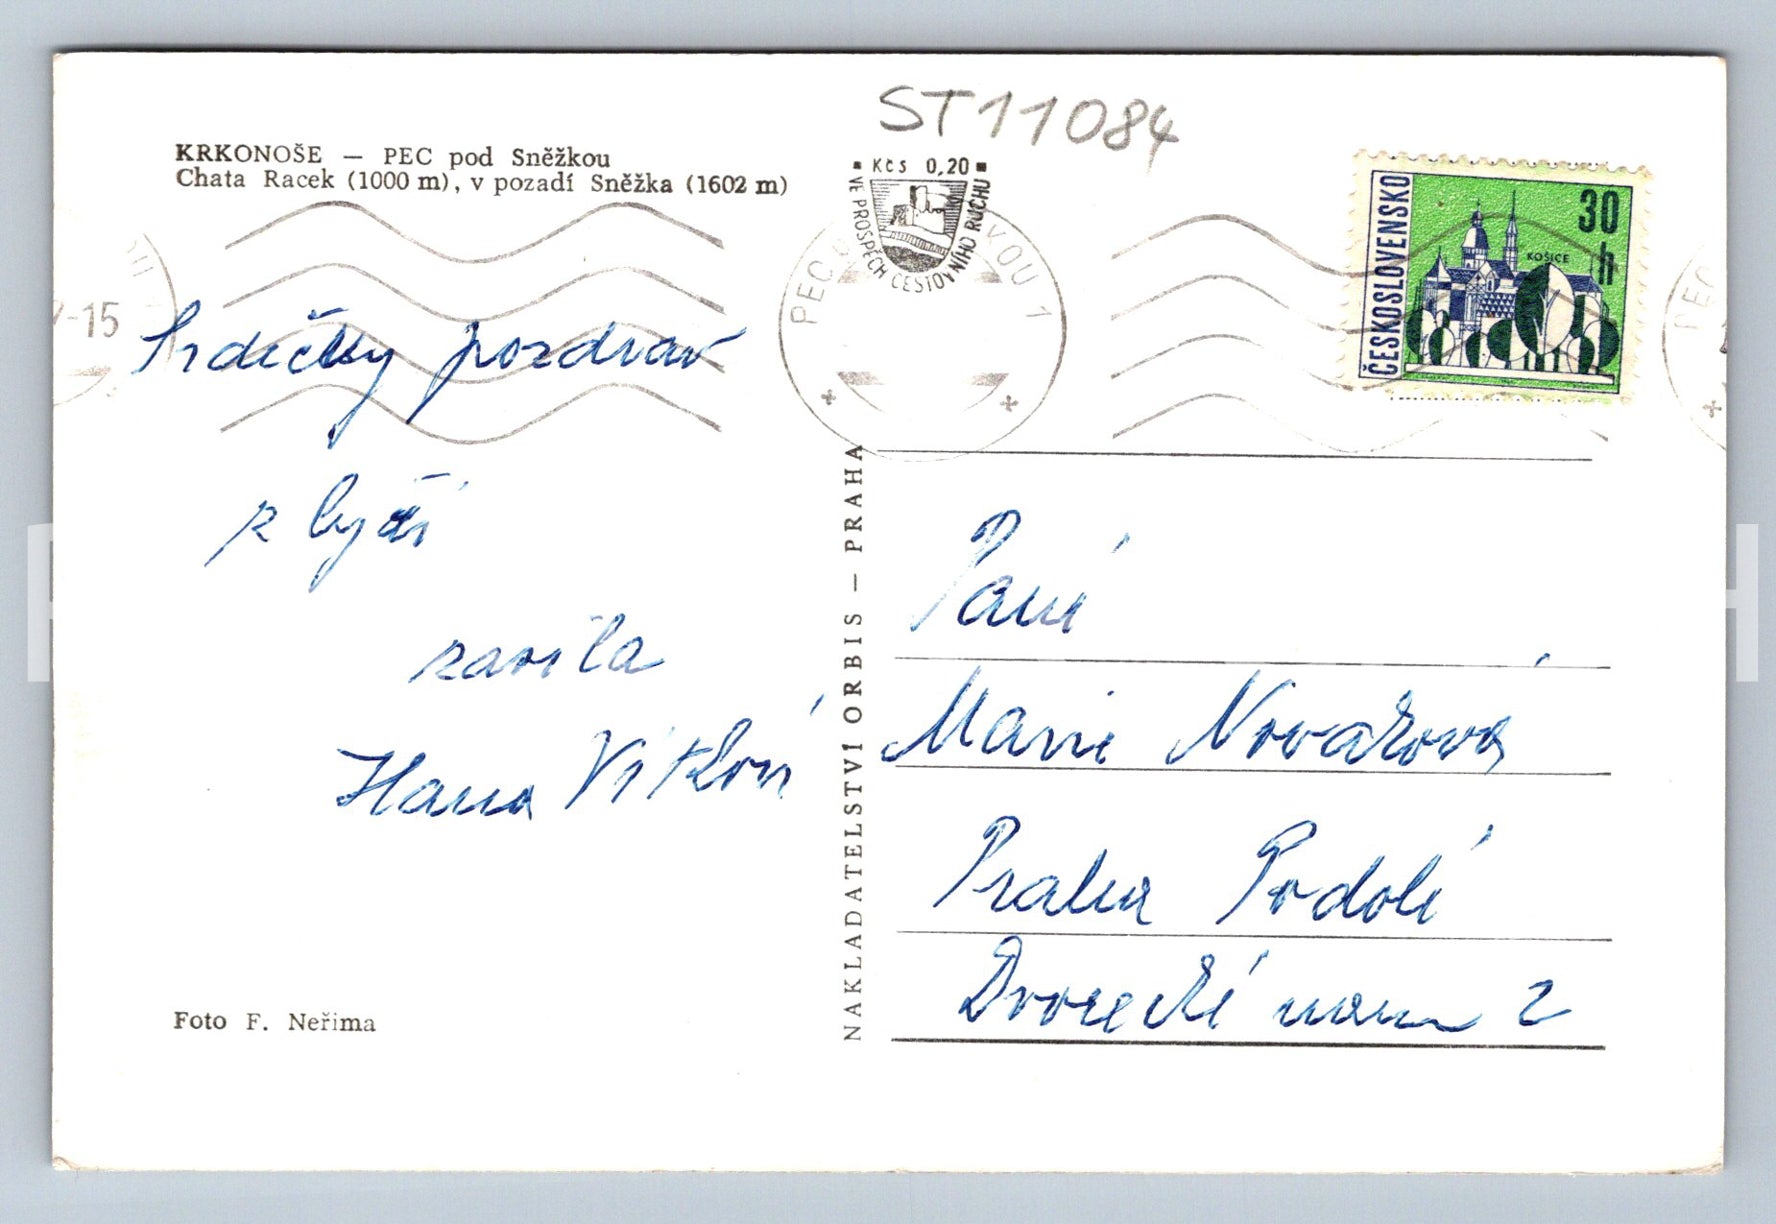 ST11084
KRKONOŠE — PEC pod Sněžkou
Chata Racek (1000 m), v pozadí Sněžka (1602 m)
Kčs 0,20
VE PROSPĚCH CESTOVNÍHO RUCHU
ČESKOSLOVENSKO
30 h
KOŠICE
-15
PEC
VOU 1
PEC
Srdečný pozdrav
z lyží
zasílá
Hana Vítková
NAKLADATELSTVÍ ORBIS — PRAHA
Paní
Marie Novaková
Praha Podolí
Dvorecké nám 2
Foto F. Neřima